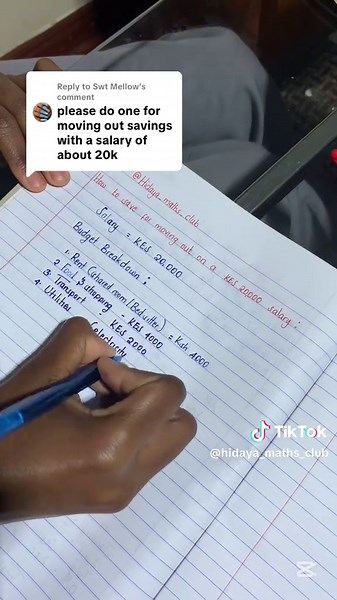 Reply to Swt Mellow's
comment
please do one for
moving out savings
with a salary of
about 20k
@Hidaya_maths_club
How to save for moving out on a KES 20000 salary:
Salary = KES 20,000
Budget Breakdown:
1. Rent (shared room/Bedsitter) = Ksh 4000
2. Food & shopping - KES 4000
3. Transport - KES 2000
4. Utilities
TikTok
@hidaya_maths_club